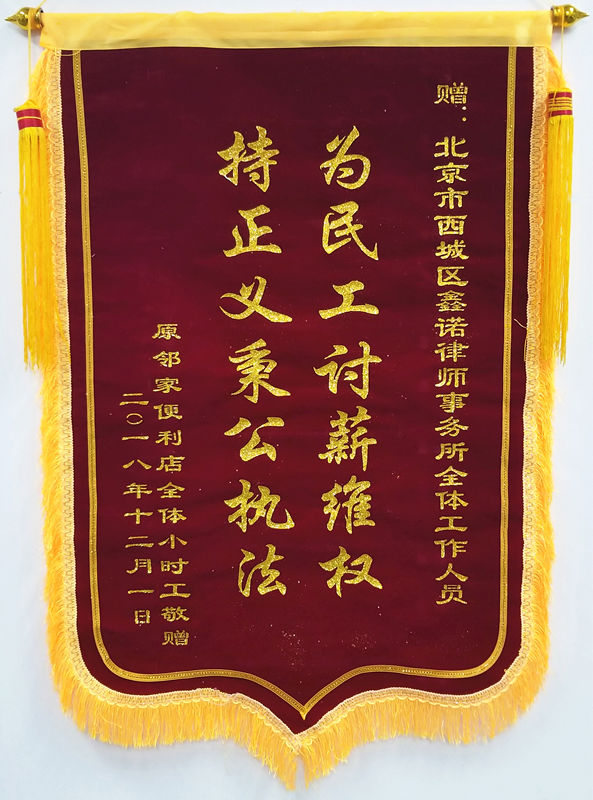 赠：北京市西城区鑫诺律师事务所全体工作人员
为民工讨薪维权
持正义秉公执法
原邻家便利店全体小时工敬赠
二〇一八年十二月一日